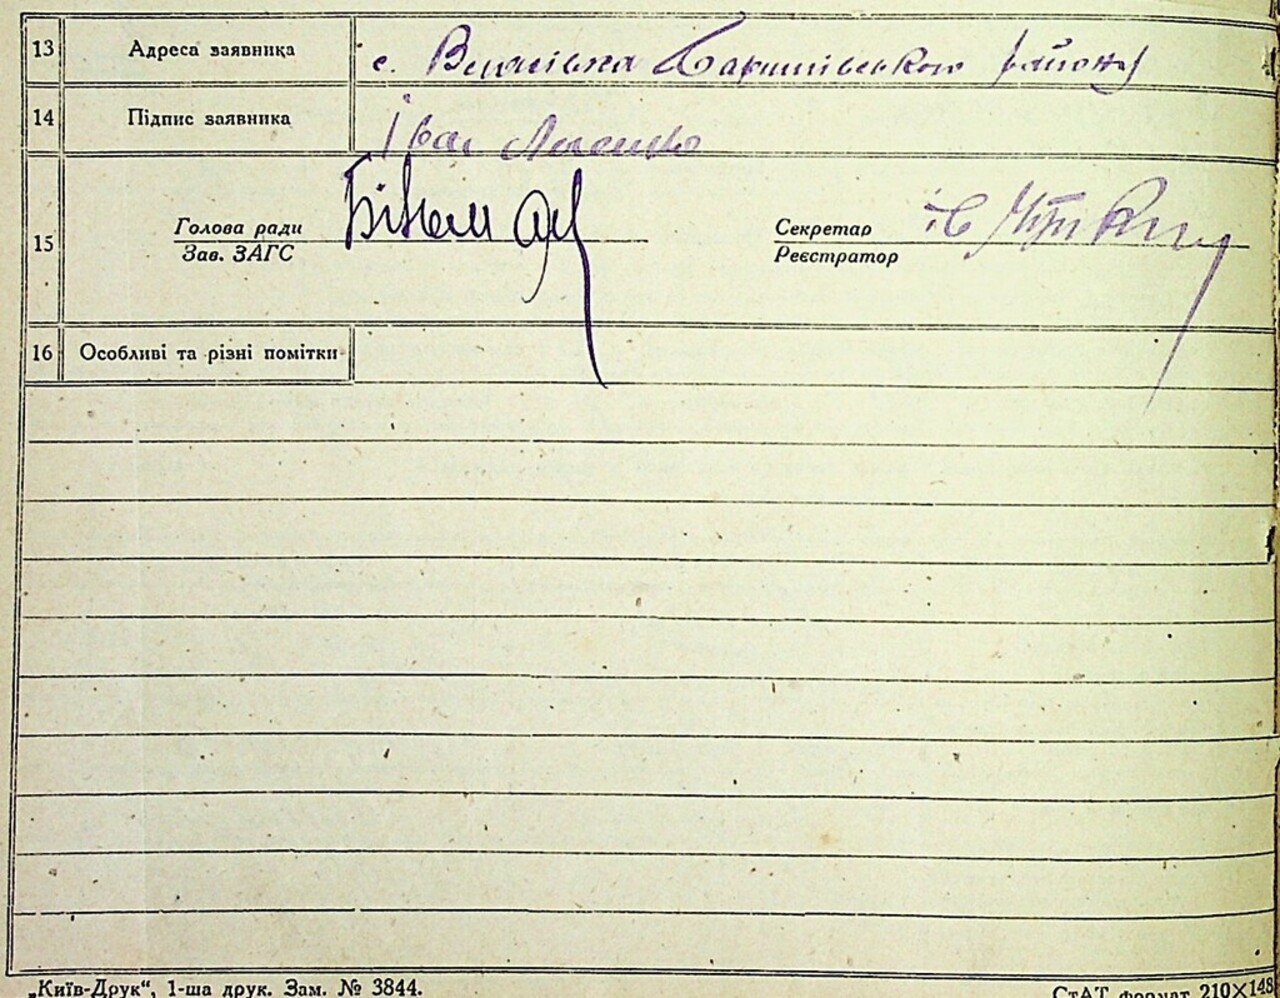 13 Адреса заявника с. Власівка Бакштівського району
14 Підпис заявника Іван
15 Голова ради
Зав. ЗАГС
Секретар
Реєстратор
16 Особливі та різні помітки
„Київ-Друк“, 1-ша друк. Зам. № 3844.
СтАТ формат 210×148